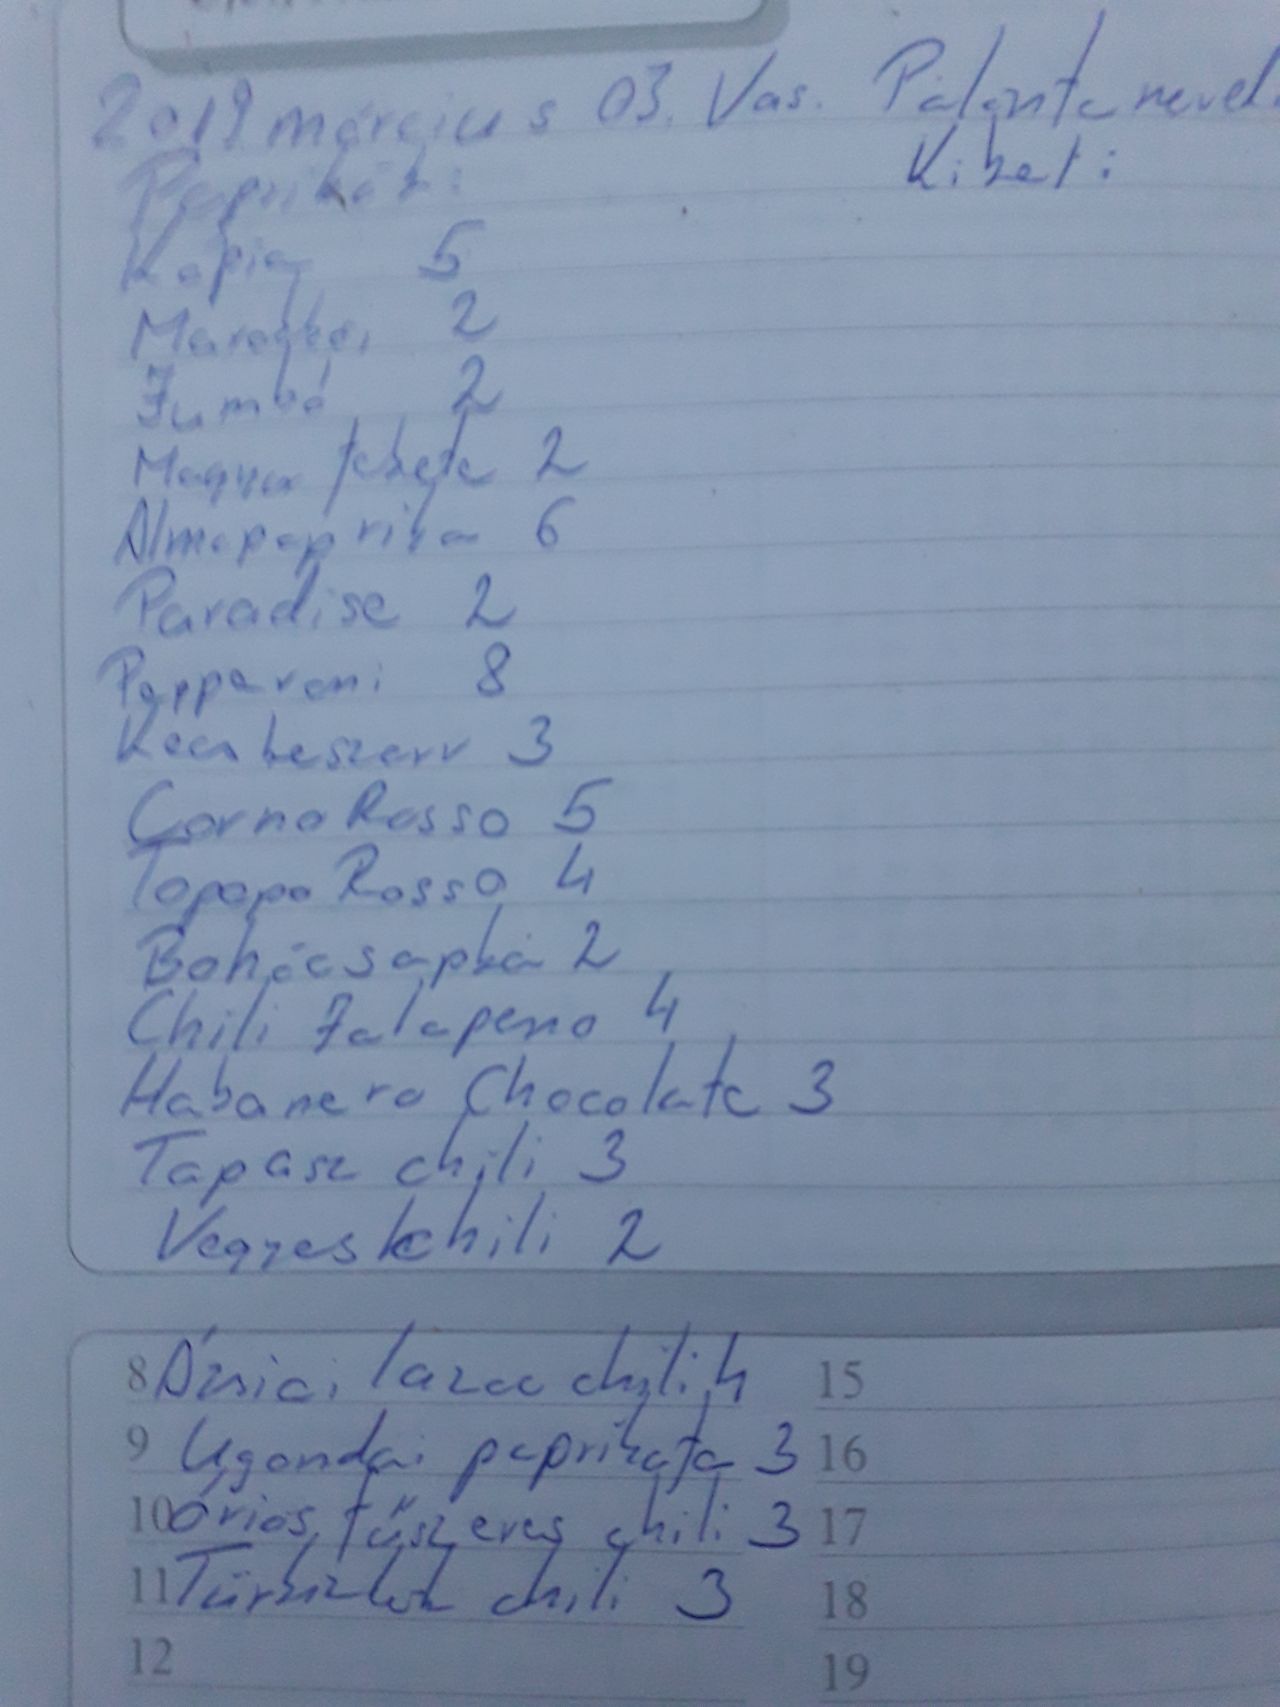 2019 március 03. Vas. Palánta nevel
Kikel:
Paprikák:
Kápia 5
Marokkói 2
Jumbó 2
Magyar fekete 2
Almapaprika 6
Paradise 2
Pepperoni 8
Kecskeszarv 3
Corno Rosso 5
Topopo Rosso 4
Bohócsapka 2
Chili Jalapeno 4
Habanero Chocolate 3
Tapasz chili 3
Vegyes chili 2
8 Ázsiai lazac chili 4 15
9 Ugandai paprikafa 3 16
10 óriás fűszeres chili 3 17
11 chili 3 18
12 19